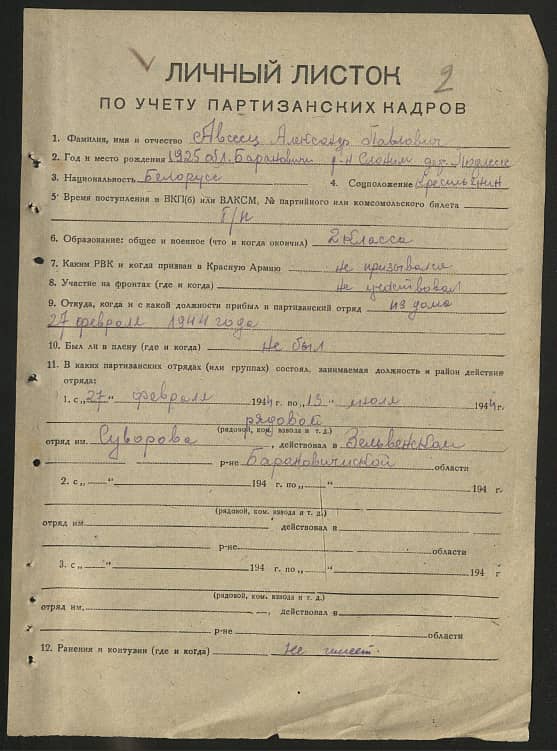 2
ЛИЧНЫЙ ЛИСТОК
ПО УЧЕТУ ПАРТИЗАНСКИХ КАДРОВ
1. Фамилия, имя и отчество Авсеец Александр Павлович
2. Год и место рождения 1925 обл. Барановичи р-н Слоним дер.
3. Национальность Белорусс 4. Соцположение Крестьянин
5. Время поступления в ВКП(б) или ВЛКСМ, № партийного или комсомольского билета
б/п
6. Образование: общее и военное (что и когда окончил) 2 класса
7. Каким РВК и когда призван в Красную Армию не призывался
8. Участие на фронтах (где и когда) не участвовал
9. Откуда, когда и с какой должности прибыл в партизанский отряд из дома
27 февраля 1944 года
10. Был ли в плену (где и когда) не был
11. В каких партизанских отрядах (или группах) состоял, занимаемая должность и район действие
отряда:
1. с „27" февраля 1944 г. по „13" июля 1944 г.
рядовой
(рядовой, ком. взвода и т. д.)
отряд им. Суворова, действовал в Зельвенском
р-не Барановичиской области
2. с „ " 194 г. по „ " 194 г.
(рядовой, ком. взвода и т. д.)
отряд им. действовал в
р-не области
3. с „ " 194 г. по „ " 194 г
(рядовой, ком. взвода и т. д.)
отряд им. , действовал в
р-не области
12. Ранения и контузии (где и когда) Не имеет.